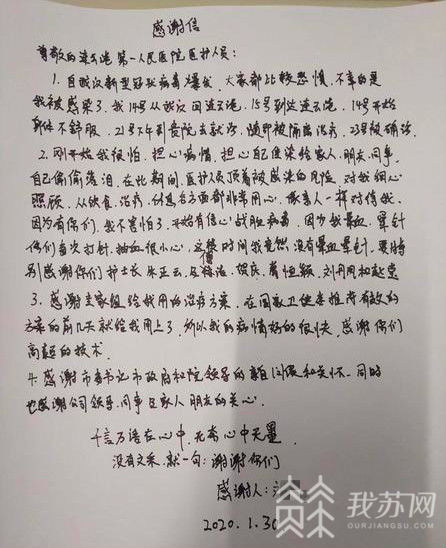 感谢信
尊敬的连云港第一人民医院医护人员:
1. 自武汉新型冠状病毒爆发,大家都比较恐慌,不幸的是
我被感染了,我14号从武汉回连云港,15号到达连云港,14号开始
身体不舒服,21号下午到贵院去就诊,随即被隔离治疗,23号被确诊.
2. 刚开始我很怕,担心病情,担心自己传染给家人,朋友,同事.
自己偷偷落泪,在此期间,医护人员顶着被感染的风险,对我细心
照顾,从饮食,治疗,信息各方面都非常用心,像亲人一样对待我,
因为有你们,我不害怕了,开始有信心战胜病毒,因为我晕血,晕针
你们每次打针,抽血很小心,这段时间我竟然没有晕血晕针,要特
别感谢你们护士长 朱正云 贺庆
3. 感谢专家组给我用的治疗方案,在国家卫健委推荐有效的
方案的前几天就给我用上了,所以我的病情好的很快,感谢你们
高超的技术.
4. 感谢市委书记市政府和院领导的亲自问候和关怀,同时
也感谢公司领导,同事及家人朋友的关心.
千言万语在心中,无奈心中无墨,
没有文采,就一句:谢谢你们
感谢人:
2020.1.30
我苏网
OURJIANGSU.COM